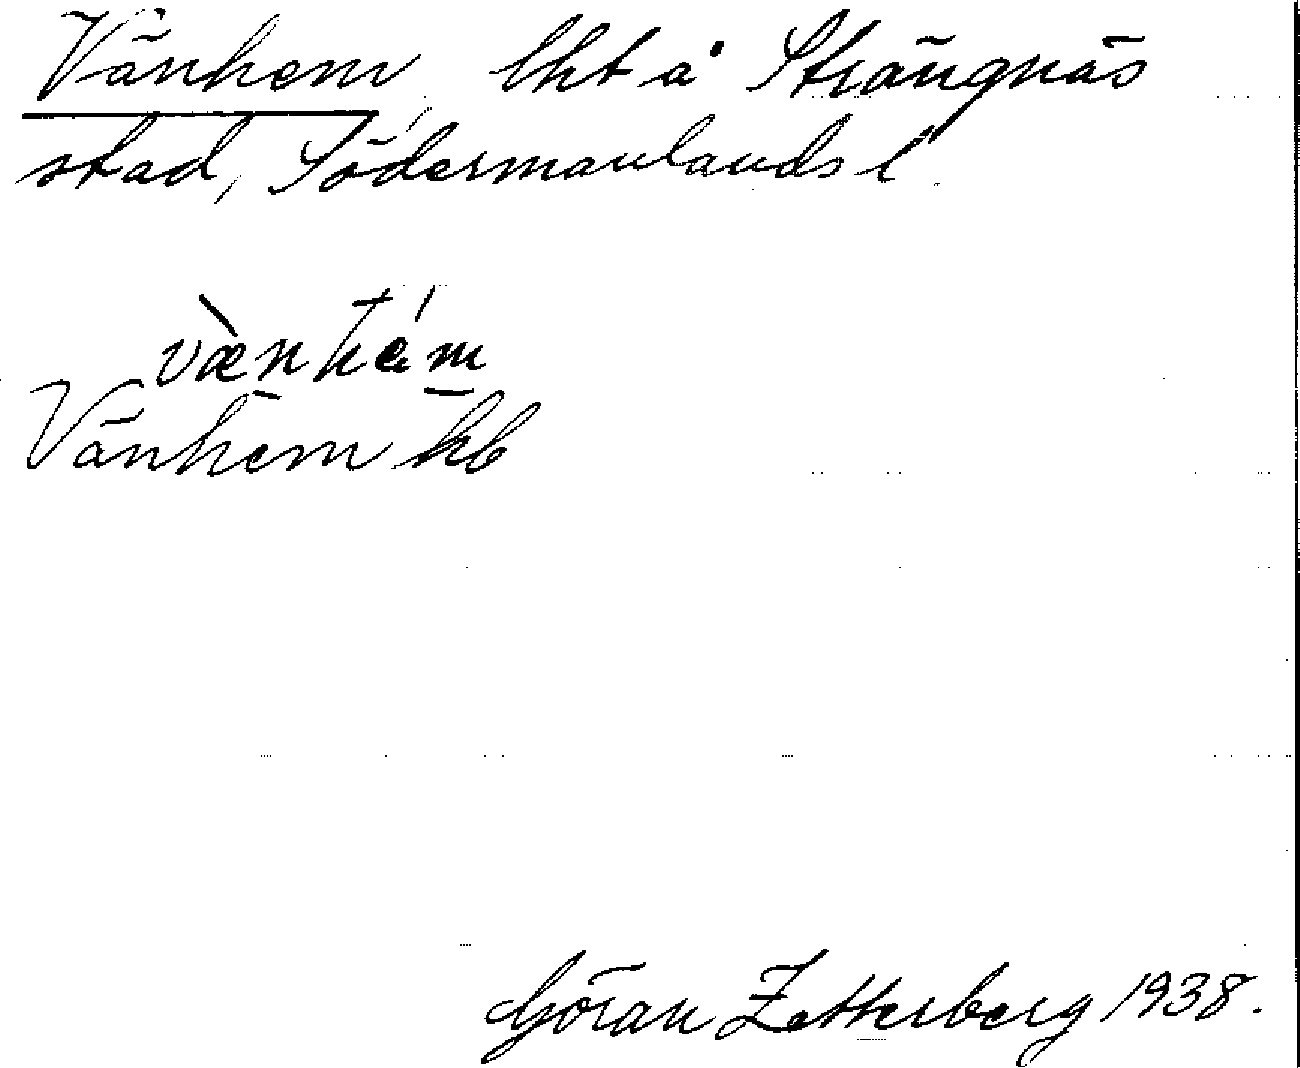 Vänhem, lht å Strängnäs
stad, Södermanlands l.
væ̀nhém
Vänhem kb
Göran Zetterberg 1938.